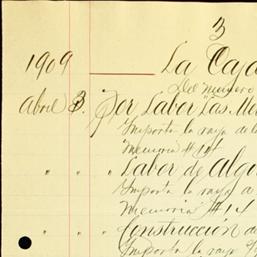 3
1909 La Caja
Del número
Abril 3. Por Labor "Las Me
Importa la raya de l
Memoria #14
" " " Labor de Alg
Importa la raya a
Memoria #14
" " " Construcción de
Importa la raya